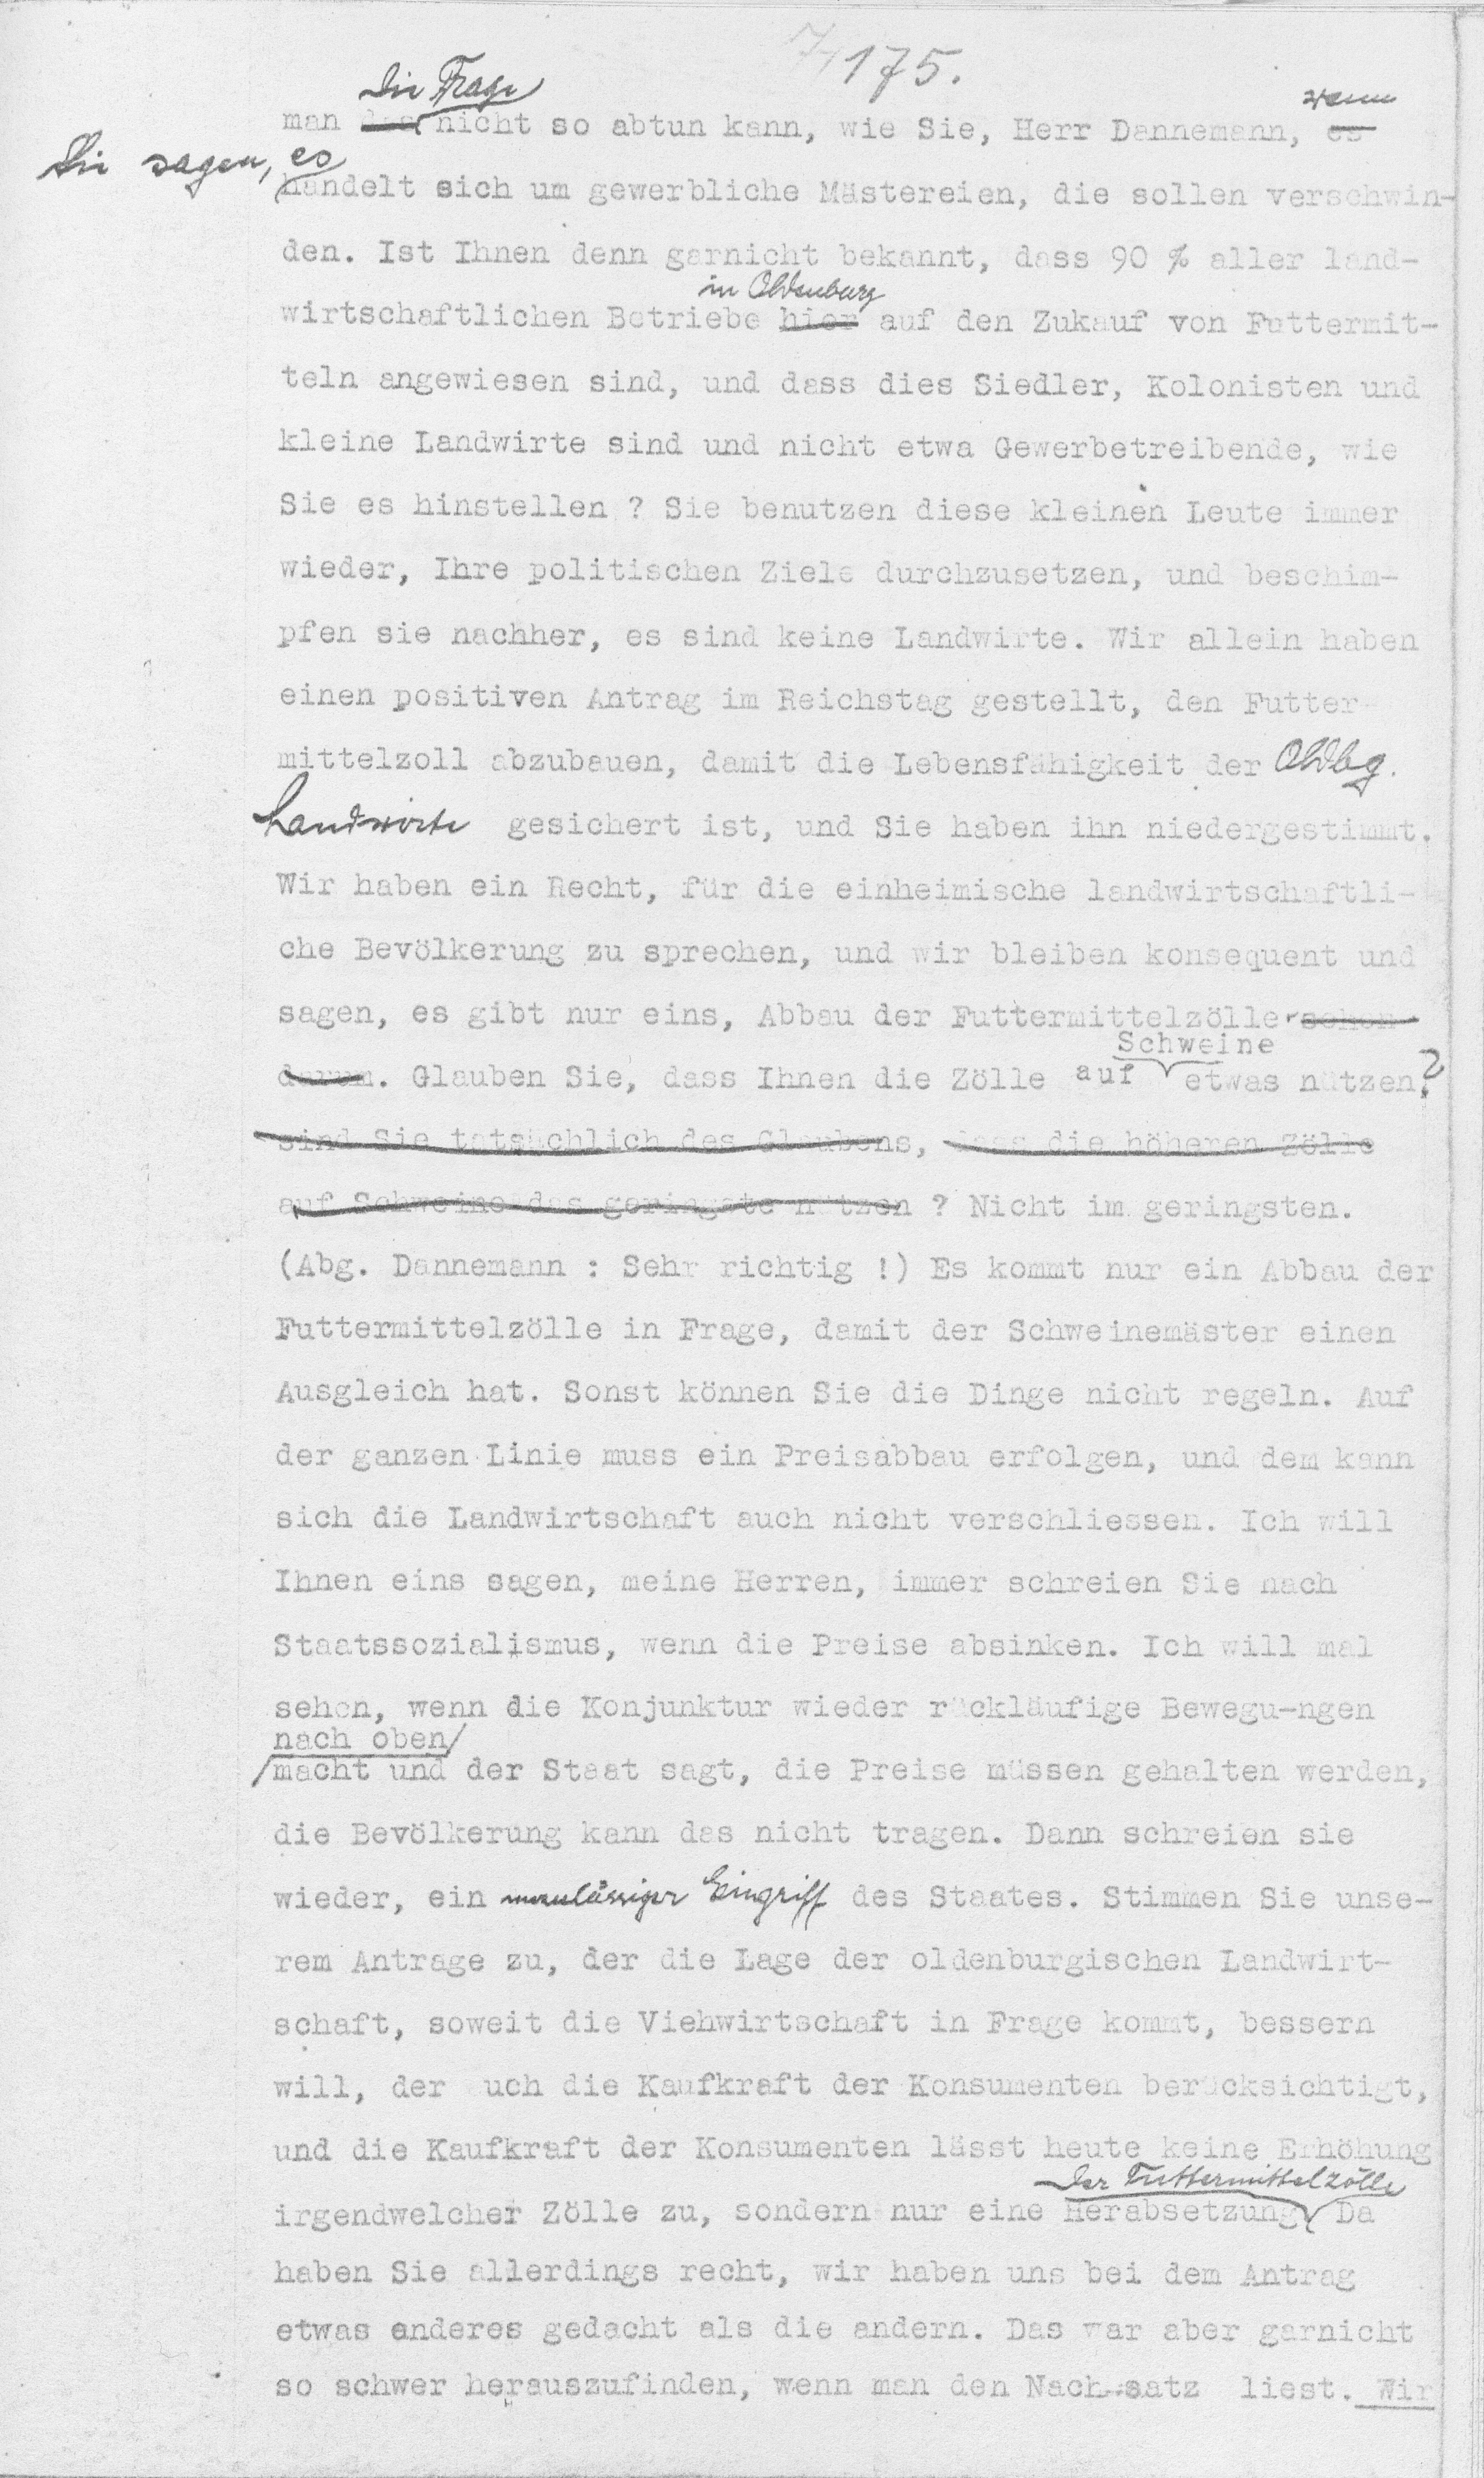 175.
die Frage wenn
man das nicht so abtun kann, wie Sie, Herr Dannemann, es
Sie sagen, es
handelt sich um gewerbliche Mästereien, die sollen verschwin-
den. Ist Ihnen denn garnicht bekannt, dass 90 % aller land-
in Oldenburg
wirtschaftlichen Betriebe hier auf den Zukauf von Futtermit-
teln angewiesen sind, und dass dies Siedler, Kolonisten und
kleine Landwirte sind und nicht etwa Gewerbetreibende, wie
Sie es hinstellen ? Sie benutzen diese kleinen Leute immer
wieder, Ihre politischen Ziele durchzusetzen, und beschim-
pfen sie nachher, es sind keine Landwirte. Wir allein haben
einen positiven Antrag im Reichstag gestellt, den Futter-
mittelzoll abzubauen, damit die Lebensfähigkeit der Oldbg.
Landwirte gesichert ist, und Sie haben ihn niedergestimmt.
Wir haben ein Recht, für die einheimische landwirtschaftli-
che Bevölkerung zu sprechen, und wir bleiben konsequent und
sagen, es gibt nur eins, Abbau der Futtermittelzölle schon
Schweine
darum. Glauben Sie, dass Ihnen die Zölle auf etwas nützen?
sind Sie tatsächlich des Glaubens, dass die höheren Zölle
auf Schweine das geringste nützen ? Nicht im geringsten.
(Abg. Dannemann : Sehr richtig !) Es kommt nur ein Abbau der
Futtermittelzölle in Frage, damit der Schweinemäster einen
Ausgleich hat. Sonst können Sie die Dinge nicht regeln. Auf
der ganzen Linie muss ein Preisabbau erfolgen, und dem kann
sich die Landwirtschaft auch nicht verschliessen. Ich will
Ihnen eins sagen, meine Herren, immer schreien Sie nach
Staatssozialismus, wenn die Preise absinken. Ich will mal
sehen, wenn die Konjunktur wieder rückläufige Bewegu-ngen
nach oben
macht und der Staat sagt, die Preise müssen gehalten werden,
die Bevölkerung kann das nicht tragen. Dann schreien sie
wieder, ein unzulässiger Eingriff des Staates. Stimmen Sie unse-
rem Antrage zu, der die Lage der oldenburgischen Landwirt-
schaft, soweit die Viehwirtschaft in Frage kommt, bessern
will, der uch die Kaufkraft der Konsumenten berücksichtigt,
und die Kaufkraft der Konsumenten lässt heute keine Erhöhung
der Futtermittelzölle
irgendwelcher Zölle zu, sondern nur eine Herabsetzung Da
haben Sie allerdings recht, wir haben uns bei dem Antrag
etwas anderes gedacht als die andern. Das war aber garnicht
so schwer herauszufinden, wenn man den Nach-satz liest. Wir